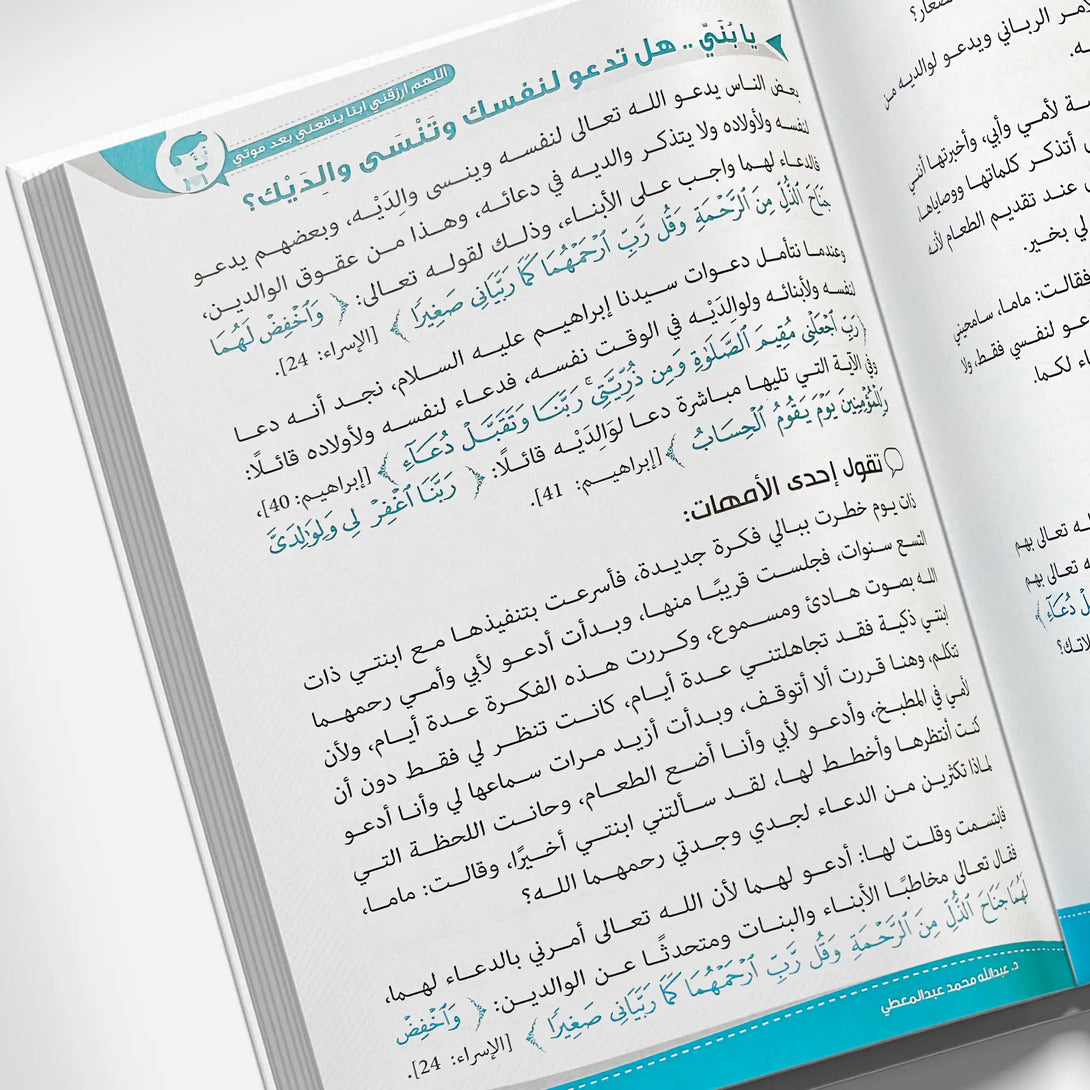 اللهم ارزقني ابنا ينفعني بعد موتي
يا بُنَيّ .. هل تدعو لنفسك وتَنْسَى والِدَيْك؟
بعض الناس يدعو الله تعالى لنفسه وينسى والِدَيْه، وبعضهم يدعو
لنفسه ولأولاده ولا يتذكر والديه في دعائه، وهذا من عقوق الوالدين،
فالدعاء لهما واجب على الأبناء، وذلك لقوله تعالى: ﴿ وَٱخْفِضْ لَهُمَا
جَنَاحَ ٱلذُّلِّ مِنَ ٱلرَّحْمَةِ وَقُل رَّبِّ ٱرْحَمْهُمَا كَمَا رَبَّيَانِي صَغِيرًا ﴾ [الإسراء: 24].
وعندما نتأمل دعوات سيدنا إبراهيم عليه السلام، نجد أنه دعا
لنفسه ولأبنائه ولوالدَيْه في الوقت نفسه، فدعاء لنفسه ولأولاده قائلًا:
﴿رَبِّ ٱجْعَلْنِي مُقِيمَ ٱلصَّلَوٰةِ وَمِن ذُرِّيَّتِيۚ رَبَّنَا وَتَقَبَّلْ دُعَآءِ ﴾ [إبراهيم: 40]،
وفي الآية التي تليها مباشرة دعا لوَالدَيْه قائلًا: ﴿ رَبَّنَا ٱغْفِرْ لِي وَلِوَٰلِدَيَّ
وَلِلْمُؤْمِنِينَ يَوْمَ يَقُومُ ٱلْحِسَابُ ﴾ [إبراهيم: 41].
تقول إحدى الأمهات:
ذات يوم خطرت ببالي فكرة جديدة، فأسرعت بتنفيذها مع ابنتي ذات
التسع سنوات، فجلست قريبًا منها، وبدأت أدعو لأبي وأمي رحمهما
الله بصوت هادئ ومسموع، وكررت هذه الفكرة عدة أيام، ولأن
ابنتي ذكية فقد تجاهلتني عدة أيام، كانت تنظر لي فقط دون أن
تتكلم، وهنا قررت ألا أتوقف، وبدأت أزيد مرات سماعها لي وأنا أدعو
لأمي في المطبخ، وأدعو لأبي وأنا أضع الطعام، وحانت اللحظة التي
كنت أنتظرها وأخطط لها، لقد سألتني ابنتي أخيرًا، وقالت: ماما،
لماذا تكثرين من الدعاء لجدي وجدتي رحمهما الله؟
فابتسمت وقلت لها: أدعو لهما لأن الله تعالى أمرني بالدعاء لهما،
فقال تعالى مخاطبًا الأبناء والبنات ومتحدثًا عن الوالدين: ﴿ وَٱخْفِضْ
لَهُمَا جَنَاحَ ٱلذُّلِّ مِنَ ٱلرَّحْمَةِ وَقُل رَّبِّ ٱرْحَمْهُمَا كَمَا رَبَّيَانِي صَغِيرًا ﴾ [الإسراء: 24].
د. عبدالله محمد عبدالمعطي
الرباني ويدعو لوالديه من
لأمي وأبي، وأخبرتها أنني
أتذكر كلماتها ووصاياها
عند تقديم الطعام لأنه
لي بخير.
فقالت: ماما، سامحيني
لنفسي فقط، ولا
لكما.
تعالى بهم
تعالى بهم
دُعَآءِ ﴾،